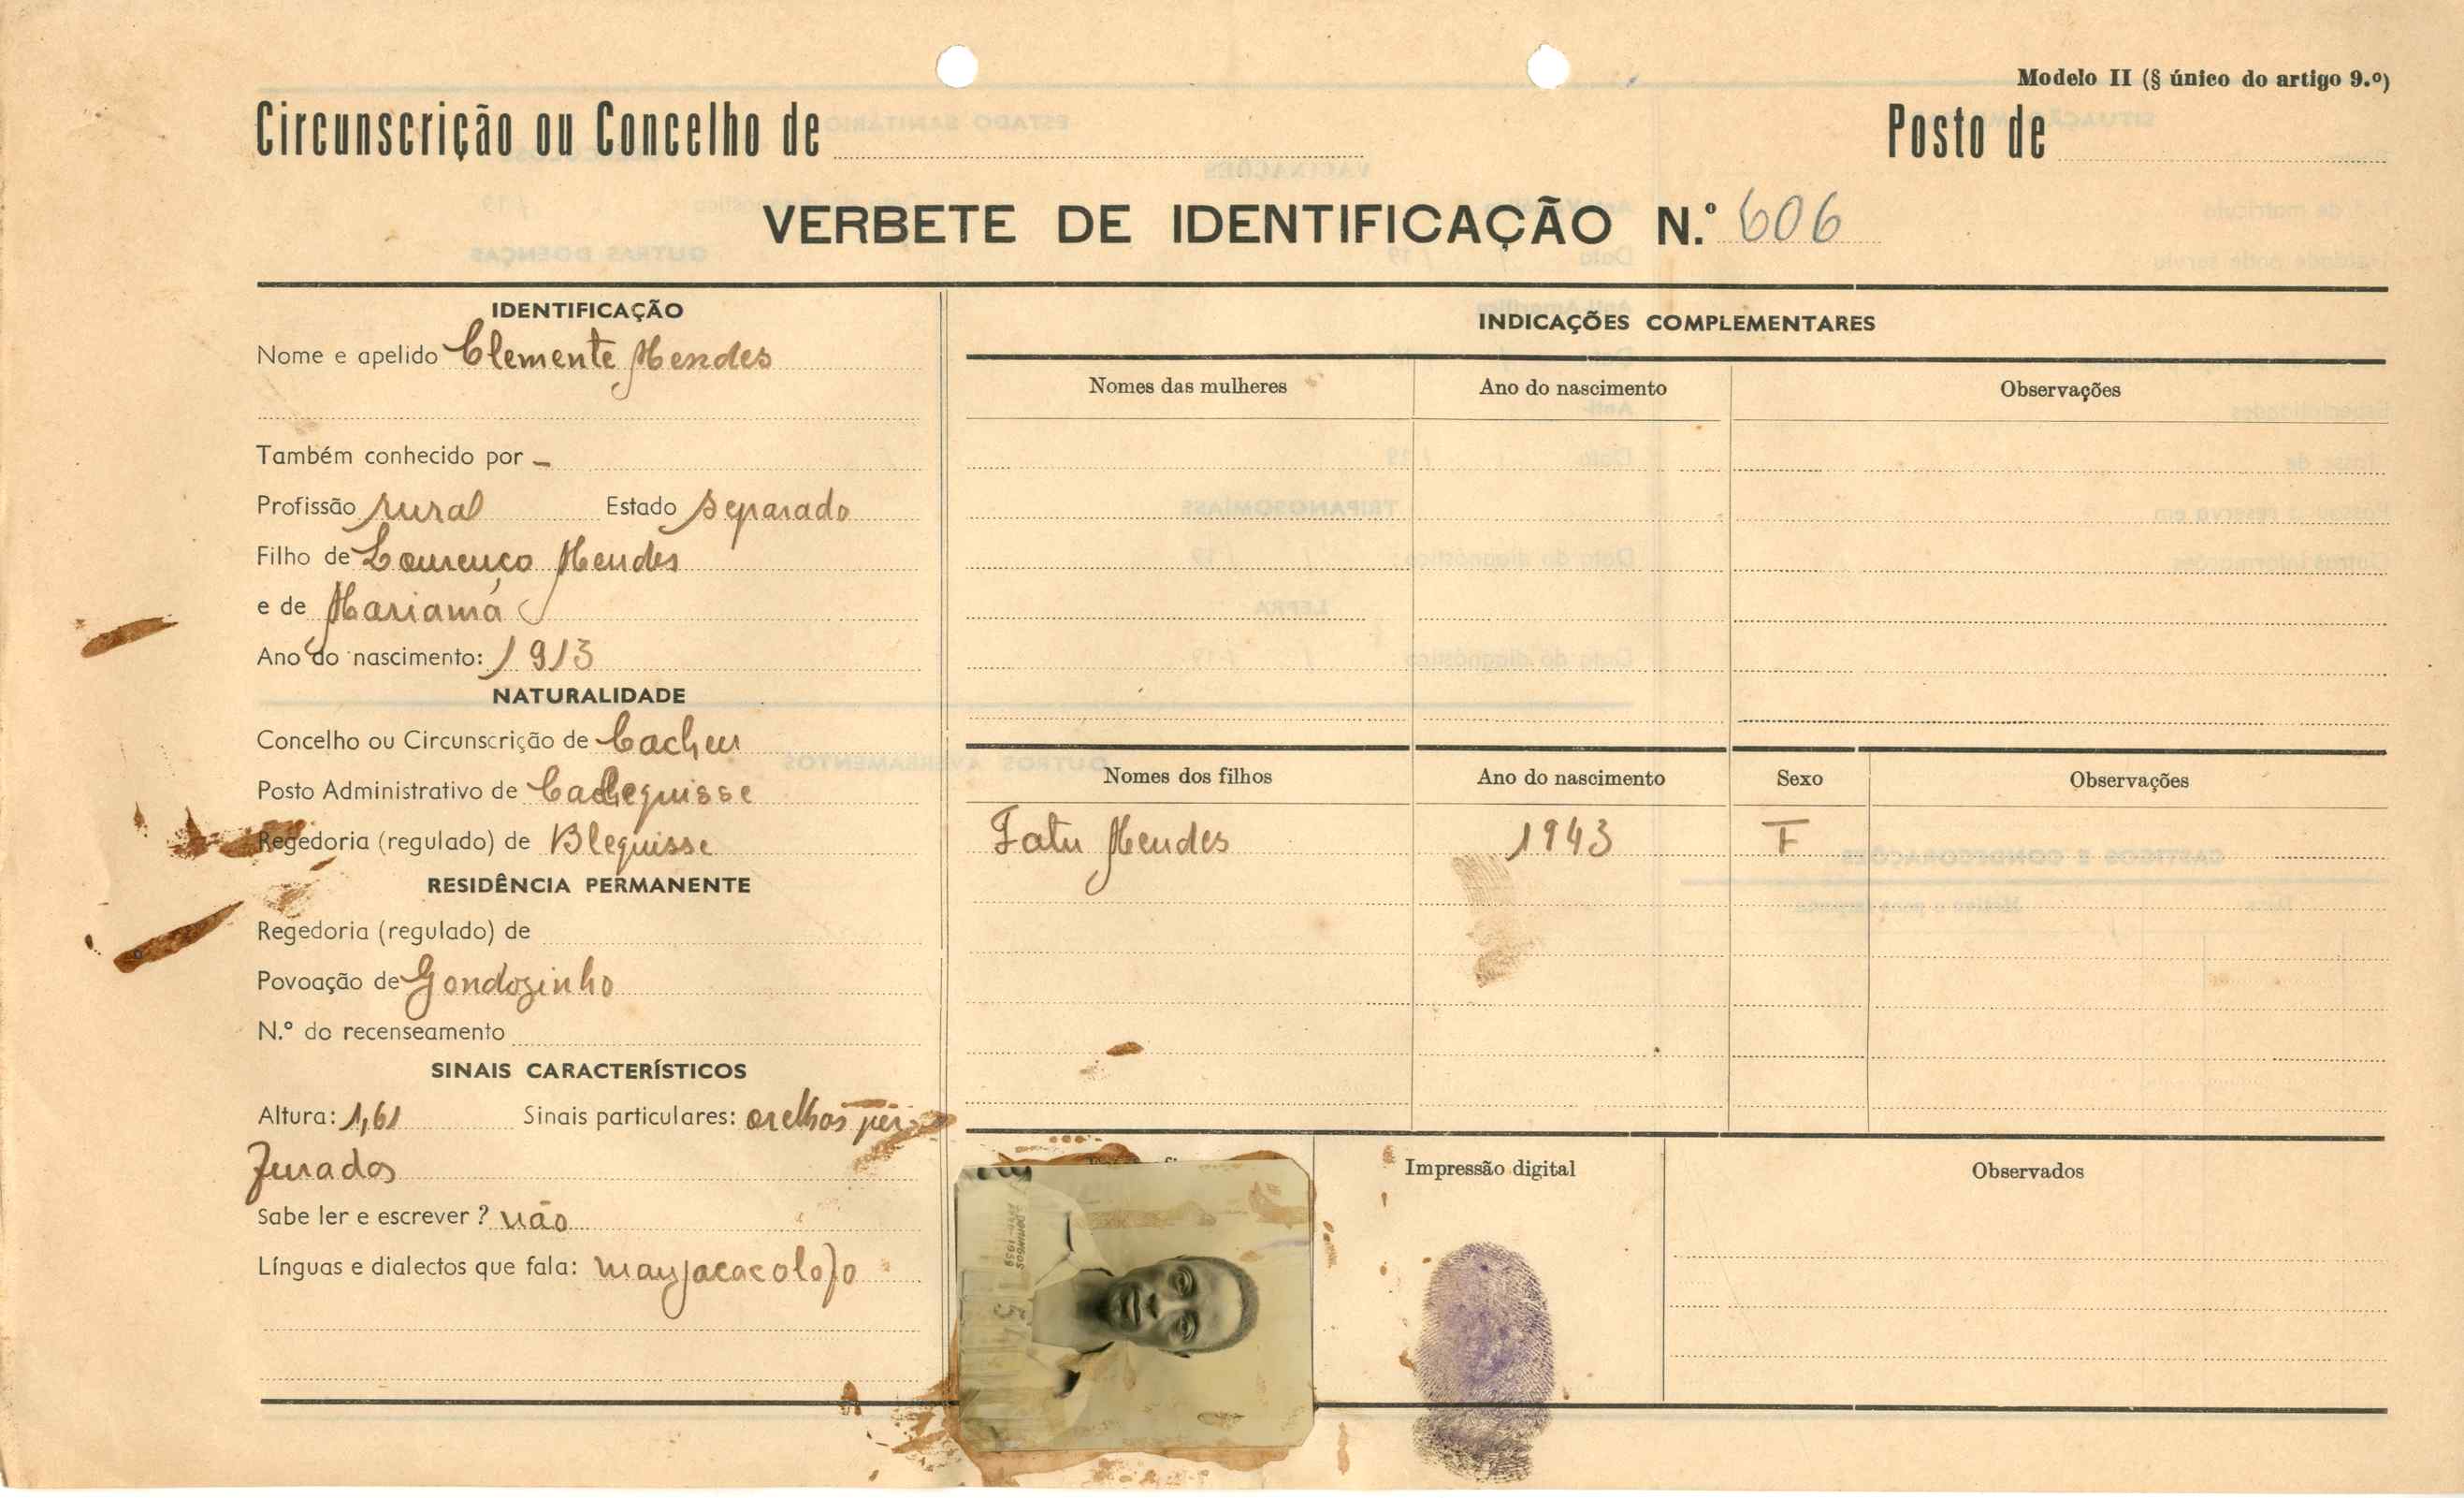 Modelo II (§ único do artigo 9.º)
Circunscrição ou Concelho de
Posto de
VERBETE DE IDENTIFICAÇÃO N.º 606
IDENTIFICAÇÃO
Nome e apelido Clemente Mendes
Também conhecido por –
Profissão rural Estado separado
Filho de Lourenço Mendes
e de Mariamá
Ano do nascimento: 1913
NATURALIDADE
Concelho ou Circunscrição de Cacheu
Posto Administrativo de
Regedoria (regulado) de Blequisse
RESIDÊNCIA PERMANENTE
Regedoria (regulado) de
Povoação de Gondozinho
N.º do recenseamento
SINAIS CARACTERÍSTICOS
Altura: 1,61 Sinais particulares: orelhas per
furados
Sabe ler e escrever? não
Línguas e dialectos que fala:
INDICAÇÕES COMPLEMENTARES
Nomes das mulheres Ano do nascimento Observações
Nomes dos filhos Ano do nascimento Sexo Observações
Fatu Mendes 1943 F
Impressão digital Observados